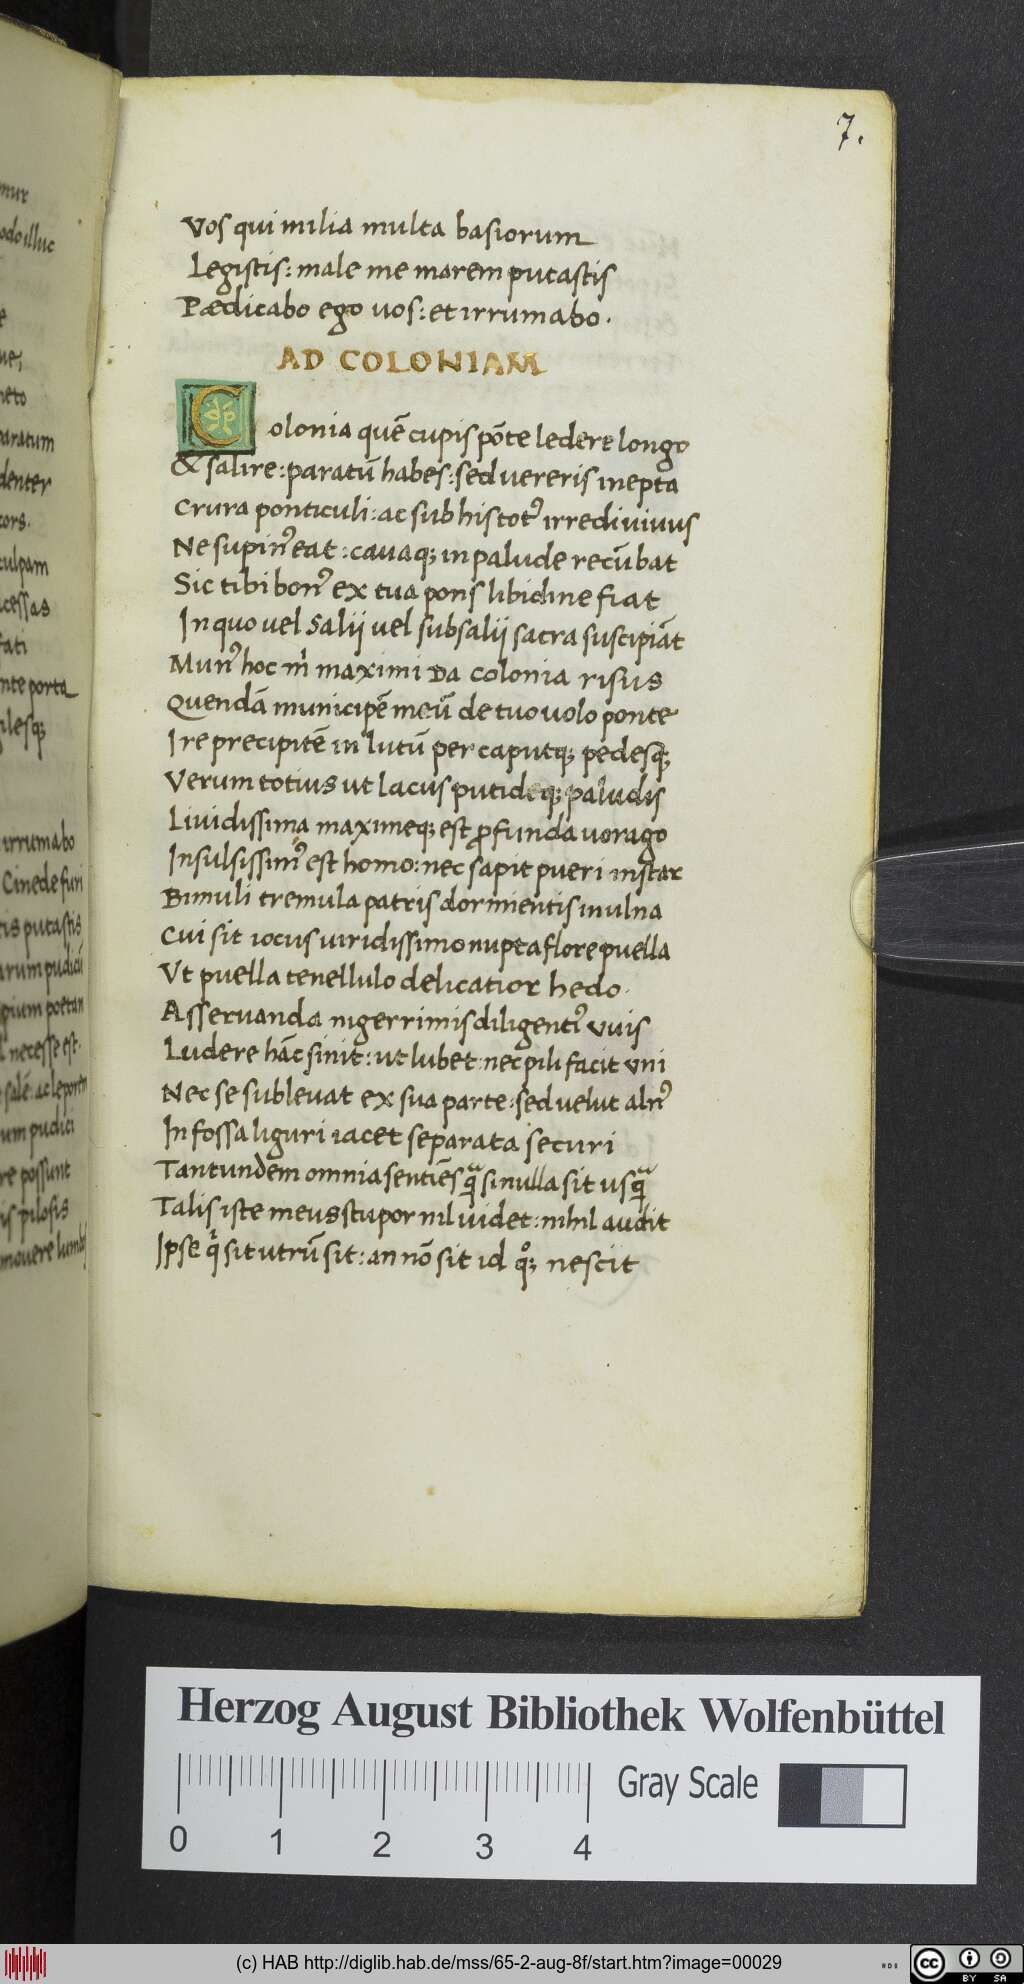 7.
Vos qui milia multa basiorum
Legistis: male me marem putastis
Pædicabo ego uos: et irrumabo.
AD COLONIAM
Colonia quē cupis pōte ledere longo
& salire: paratū habes: sed uereris inepta
Crura ponticuli: ac sub his totꝰ irrediuiuus
Ne supinꝰ eat: cauaq; in palude recūbat
Sic tibi bonꝰ ex tua pons libidine fiat
In quo uel Salii uel subsalii sacra suscipiāt
Munꝰ hoc m̄ maximi da colonia risus
Quendā municipē meū de tuo uolo ponte
Ire precipitē in lutū per caputq; pedesq;
Verum totius ut lacus putideq; paludis
Liuidissima maximeq; est ꝓfunda uorago
Insulsissimꝰ est homo: nec sapit pueri instar
Bimuli tremula patris dormientis in ulna
Cui sit iocus uiridissimo nupta flore puella
Vt puella tenellulo delicatior hedo.
Asseruanda nigerrimis diligentiꝰ uuis
Ludere hāc sinit: ut lubet: nec pili facit uni
Nec se subleuat ex sua parte: sed uelut alnꝰ
In fossa liguri iacet separata securi
Tantundem omnia sentiēs q̄ si nulla sit usq̄
Talis iste meus stupor nil uidet: nihil audit
Ipse q̇ sit utrū sit: an nō sit id qͦ; nescit
mur
odo illuc
ue;
neto
paratum
denter
cors.
culpam
cessas
fati
nte porta
ilesq;
irrumabo
Cinede furi
tis putastis
arum pudicū
pium poetam
necesse est.
salē: ac leporem
um pudici
re possunt
is pilosis
mouere lumbos
Herzog August Bibliothek Wolfenbüttel
Gray Scale
0 1 2 3 4
(c) HAB http://diglib.hab.de/mss/65-2-aug-8f/start.htm?image=00029
HAB
cc BY SA